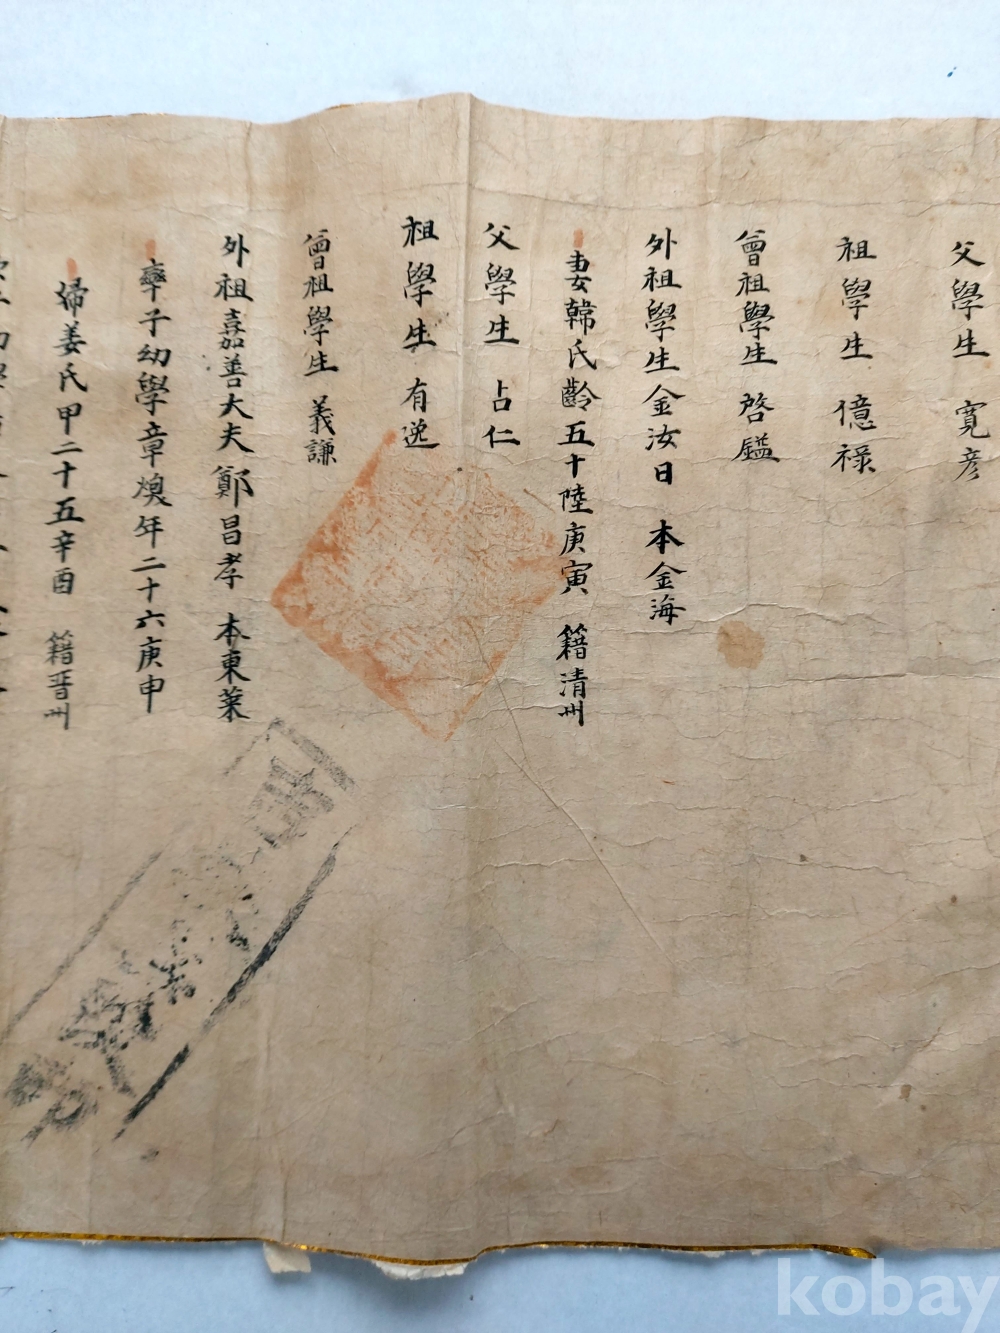 父學生 寬彦
祖學生 億祿
曾祖學生 啓鎰
外祖學生金汝日 本金海
妻韓氏齡五十陸庚寅 籍清州
父學生 占仁
祖學生 有逸
曾祖學生 義謙
外祖嘉善大夫鄭昌孝 本東萊
率子幼學章煥年二十六庚申
婦姜氏甲二十五辛酉 籍晋州
kobay